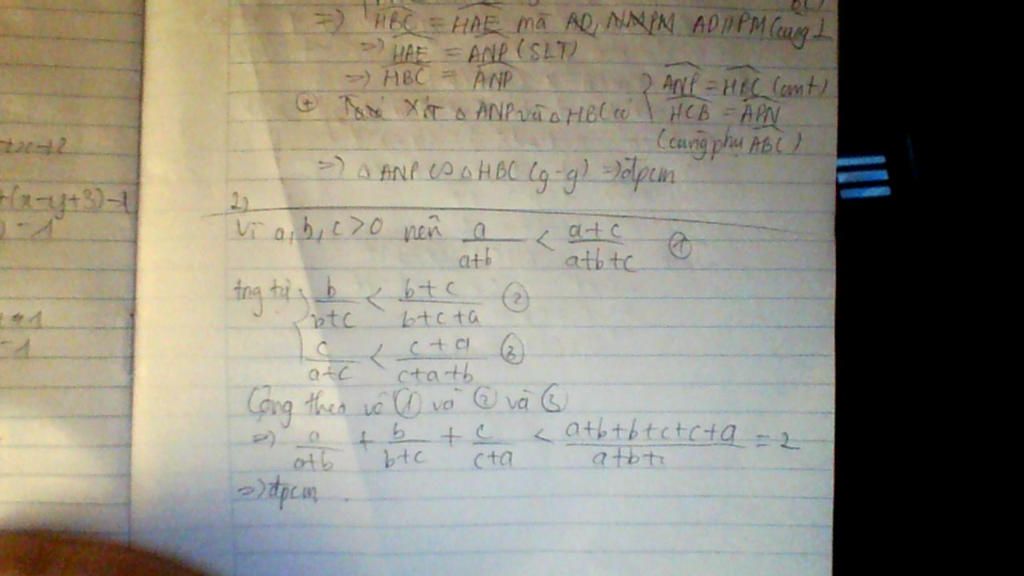 => HBC = HAE mà AD, AD // PM (cùng ⊥
=> HAE = ANP (SLT)
=> HBC = ANP
+ Xét Δ ANP và Δ HBC có { ANP = HBC (cmt)
HCB = APN
(cùng phụ ABC)
=> Δ ANP ∽ Δ HBC (g-g) => đpcm
2)
Vì a, b, c > 0 nên a/(a+b) < (a+c)/(a+b+c) ①
tng tự { b/(b+c) < (b+c)/(b+c+a) ②
c/(a+c) < (c+a)/(c+a+b) ③
Cộng theo vế ① và ② và ③
=> a/(a+b) + b/(b+c) + c/(c+a) < (a+b+b+c+c+a)/(a+b+c) = 2
=> đpcm.
+(x-y+3)-1
-1
-1